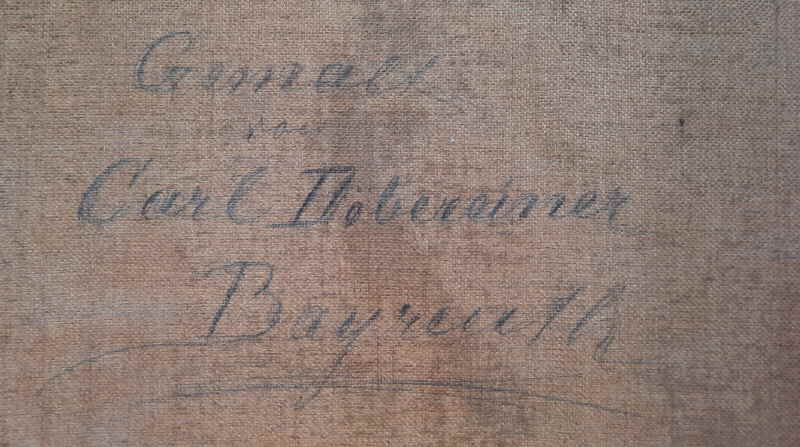 Gemalt
von
Carl Döbereiner
Bayreuth